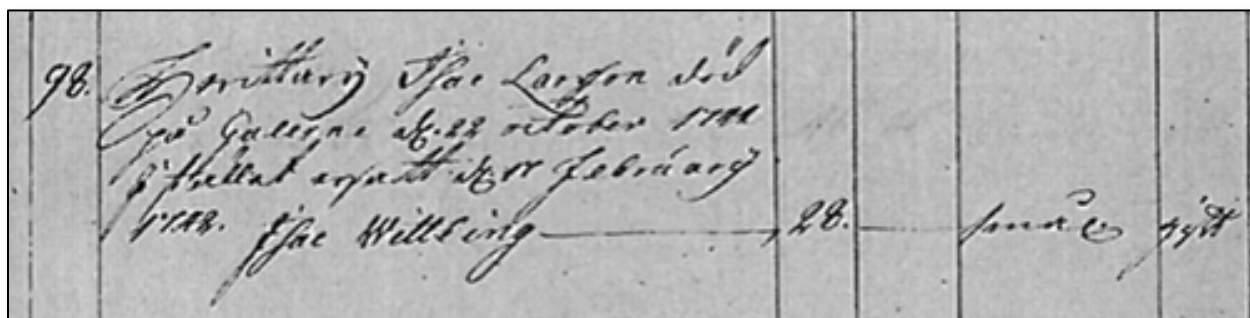 98. Isac Larsson död
på Galerne d. 22 october 1741
i stellet ersatt d. 17 February
1742. Isac Willbing 28. gift